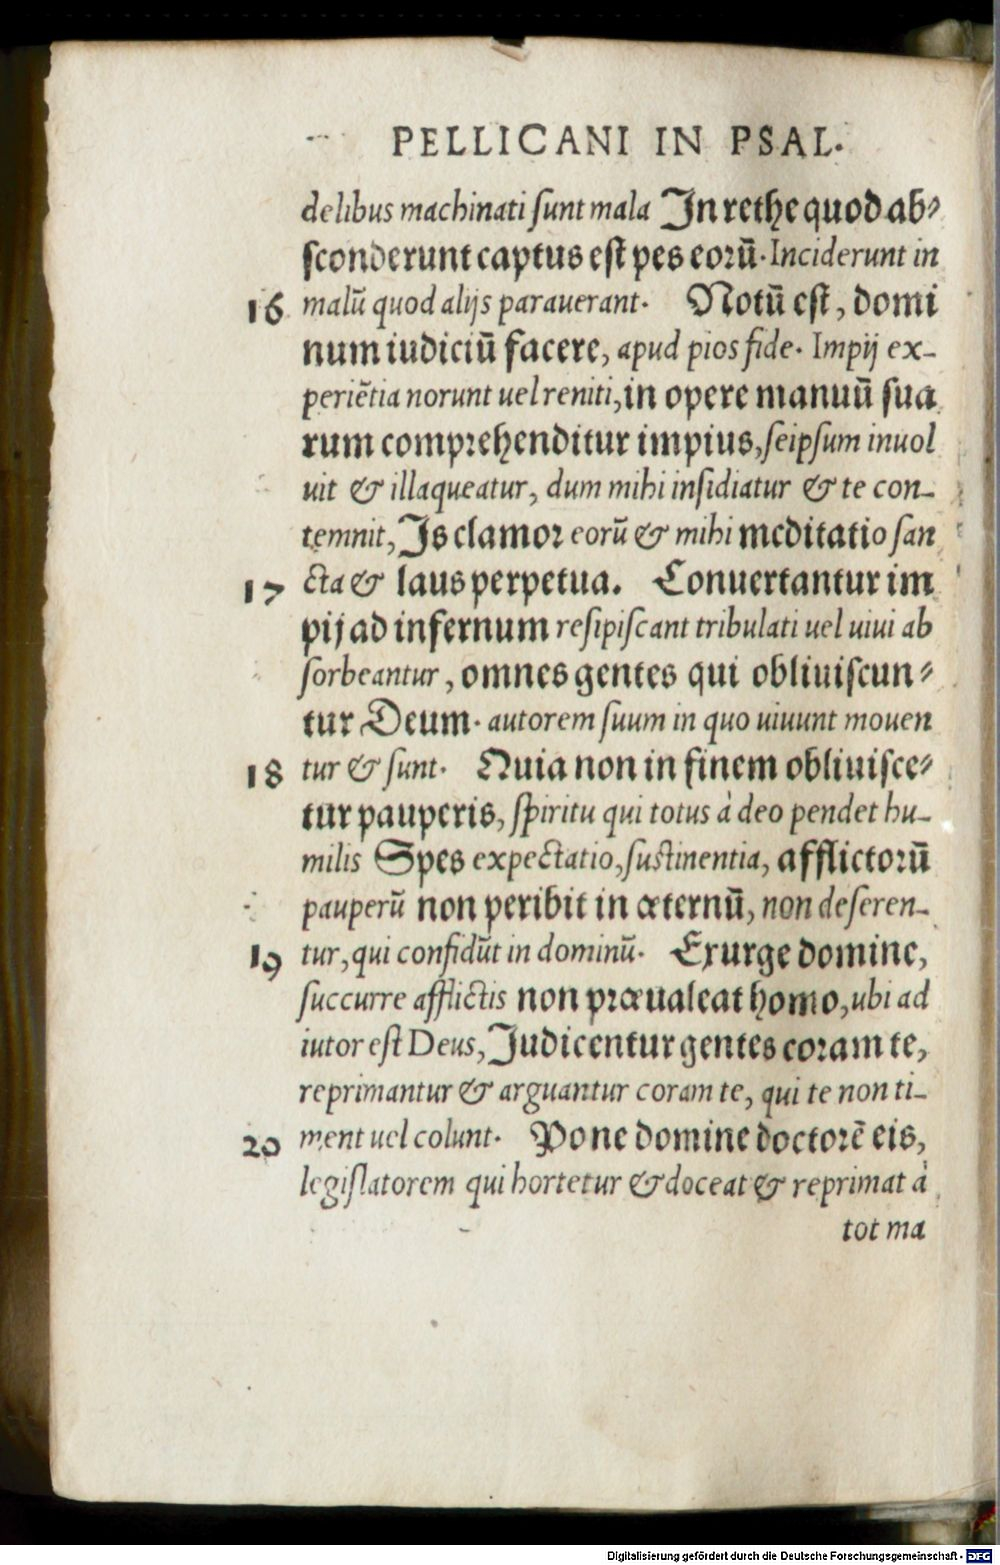 PELLICANI IN PSAL.
delibus machinati ſunt mala Jn rethe quod ab⸗
ſconderunt captus eſt pes eoꝛū. Inciderunt in
16 malū quod alijs parauerant. Notū eſt, domi
num iudiciū facere, apud pios fide. Impij ex-
periẽtia norunt uel reniti, in opere manuū ſua
rum compꝛehenditur impius, ſeipſum inuol
uit & illaqueatur, dum mihi inſidiatur & te con-
temnit, Js clamoꝛ eorū & mihi meditatio ſan
17 cta & laus perpetua. Conuertantur im
pij ad infernum reſipiſcant tribulati uel uiui ab
ſorbeantur, omnes gentes qui obliuiſcun⸗
tur Deum. autorem ſuum in quo uiuunt mouen
18 tur & ſunt. Quia non in finem obliuiſce⸗
tur pauperis, ſpiritu qui totus à deo pendet hu-
milis Spes expectatio, ſuſtinentia, afflictoꝛū
pauperū non peribit in æternū, non deſeren-
19 tur, qui confidũt in dominū. Exurge domine,
ſuccurre afflictis non pꝛæualeat homo, ubi ad
iutor eſt Deus, Judicentur gentes coꝛam te,
reprimantur & arguantur coram te, qui te non ti-
20 ment uel colunt. Pone domine doctoꝛẽ eis,
legiſlatorem qui hortetur & doceat & reprimat à
tot ma
Digitalisierung gefördert durch die Deutsche Forschungsgemeinschaft - DFG